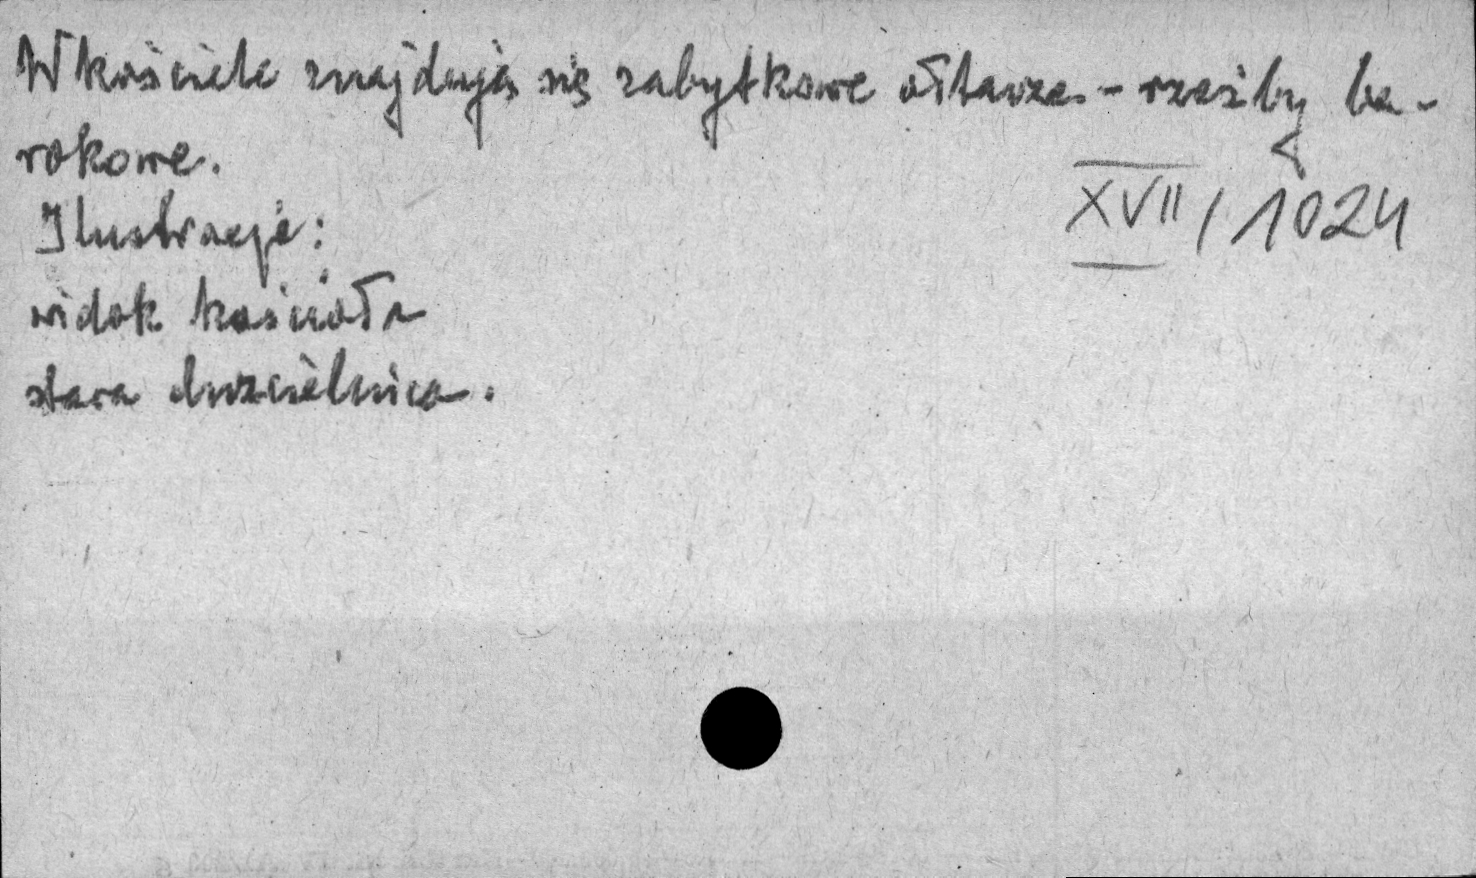 W kościele znajdują się zabytkowe ołtarze - rzeźby ba-
rokowe.
XVII / 1024
Ilustracje:
widok kościoła
stara chrzcielnica.